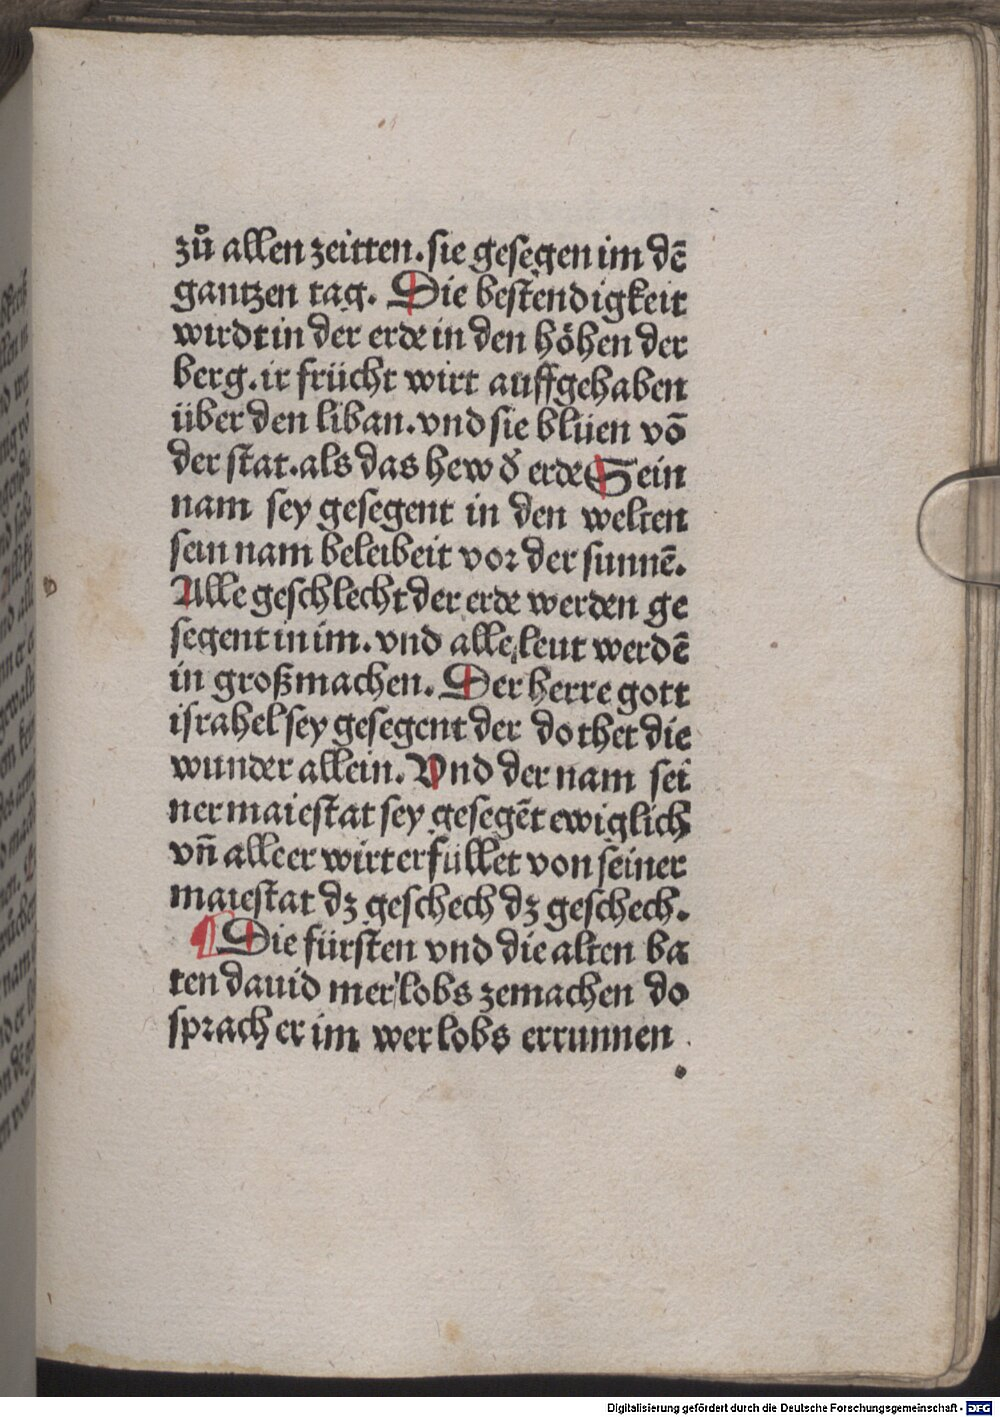 zů allen zeitten. sie gesegen im dē
gantzen tag. Die bestendigkeit
wirdt in der erde in den höhen der
berg. ir frücht wirt auffgehaben
über den liban. vnd sie blüen vō
der stat. als das hew d̕ erde Sein
nam sey gesegent in den welten
sein nam beleibeit vor der sunnē.
Alle geschlecht der erde werden ge
segent in im. vnd alle leut werdē
in großmachen. Der herre gott
israhel sey gesegent der do thet die
wunder allein. Vnd der nam sei
ner maiestat sey gesegēt ewiglich
vn̄ alle er wirt erfüllet von seiner
maiestat dz geschech dz geschech.
¶ Die fürsten vnd die alten ba
ten dauid mer lobs zemachen do
sprach er im wer lobs errunnen.
Digitalisierung gefördert durch die Deutsche Forschungsgemeinschaft - DFG